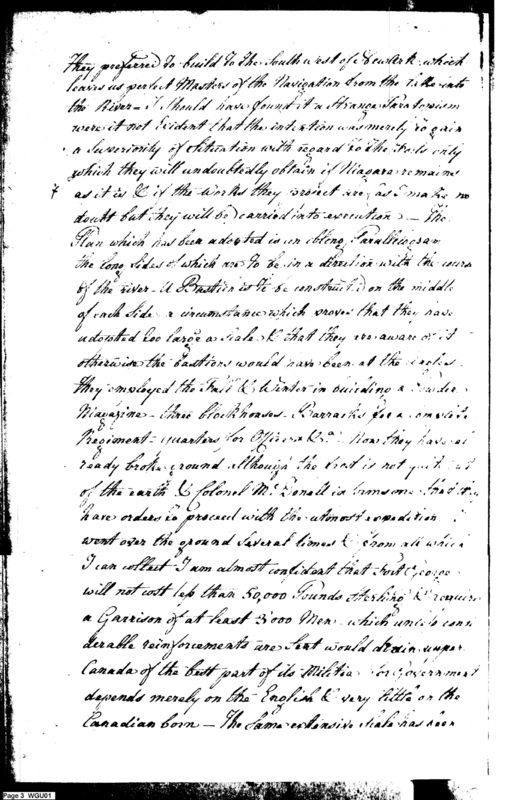 They preferred to build to the South west of Newark which
leaves us perfect Masters of the Navigation from the Lake into
the River – I should have found it a strange
were it not Evident that the intention was merely to gain
a Superiority of Situation with regard to the only
which they will undoubtedly obtain if Niagara remains
as it is & if the Works they project are, as I make no
doubt but they will be carried into execution – The
Plan which has been adopted is an oblong Parallelogram
the long Sides of which are to be in a direction with the course
of the river – A Bastion is to be constructed on the middle
of each Side a circumstance which proves that they have
adopted too large a Scale & that they are aware of it
otherwise the bastions would have been at the Angles –
They employed the Fall & Winter in building a Powder
Magazine – three blockhouses – Barracks for a complete
Regiment – quarters for Officers &ca. Now they have al
ready broke ground although the frost is not quite out
of the earth & Colonel McDonall informs me that they
have orders to proceed with the utmost expedition I
went over the ground Several times & from all which
I can collect I am almost confident that Fort George
will not cost less than 50,000 Pounds Sterling & require
a Garrison of at least 3000 Men which unless consi
derable reinforcements are Sent would drain upper
Canada of the best part of its Militia for Government
depends merely on the English & very little on the
Canadian born – The Same extensive Scale has been
Page 3 WGU01